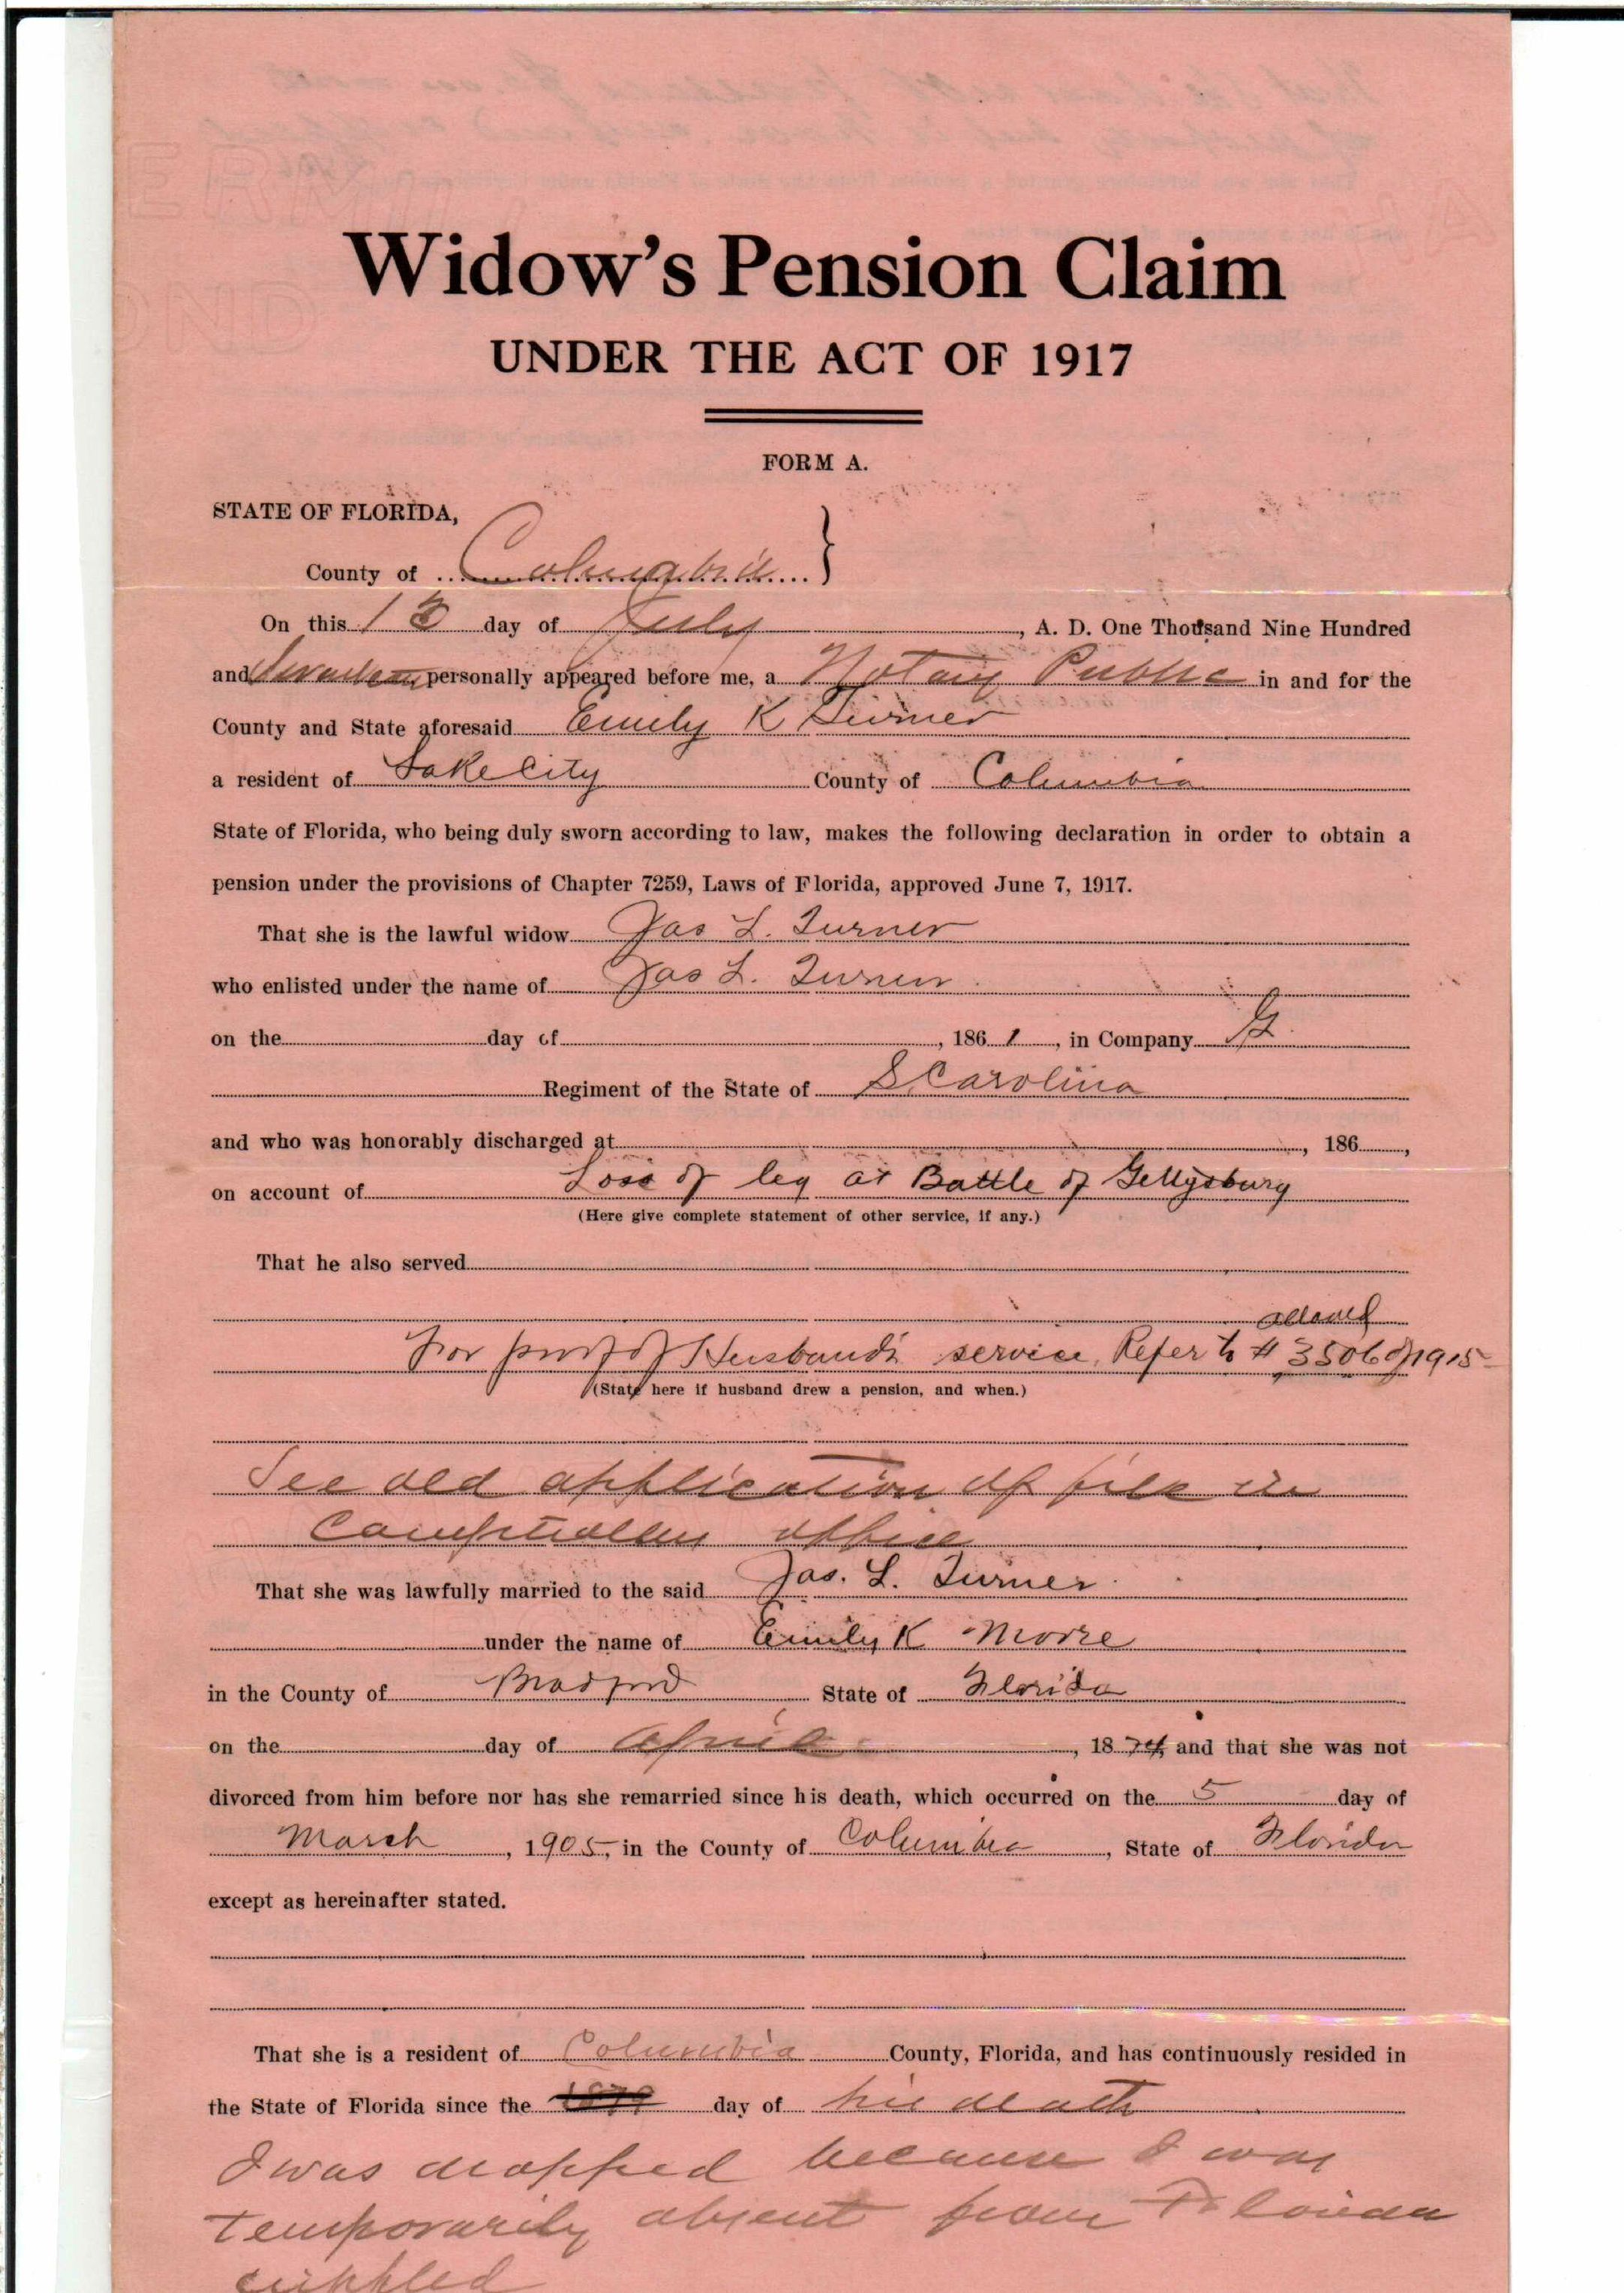 Widow's Pension Claim
UNDER THE ACT OF 1917
FORM A.
STATE OF FLORIDA,
County of Columbia }
On this 13 day of July, A. D. One Thousand Nine Hundred
and personally appeared before me, a Notary Public in and for the
County and State aforesaid Emily K Turner
a resident of Lake City County of Columbia
State of Florida, who being duly sworn according to law, makes the following declaration in order to obtain a
pension under the provisions of Chapter 7259, Laws of Florida, approved June 7, 1917.
That she is the lawful widow Jas L. Turner
who enlisted under the name of Jas L. Turner
on the day of , 1861, in Company G.
Regiment of the State of S Carolina
and who was honorably discharged at , 186 ,
on account of Loss of leg at Battle of Gettysburg
(Here give complete statement of other service, if any.)
That he also served
allowed
For proof of Husband's service, Refer to # 3506 of 1915
(State here if husband drew a pension, and when.)
See old application of file in
Comptrollers office
That she was lawfully married to the said Jas. L. Turner
under the name of Emily K Moore
in the County of Bradford State of Florida
on the day of April , 1874, and that she was not
divorced from him before nor has she remarried since his death, which occurred on the 5 day of
March , 1905, in the County of Columbia , State of Florida
except as hereinafter stated.
That she is a resident of Columbia County, Florida, and has continuously resided in
the State of Florida since the 1879 day of his death
I was dropped because I was
temporarily absent from Florida
crippled